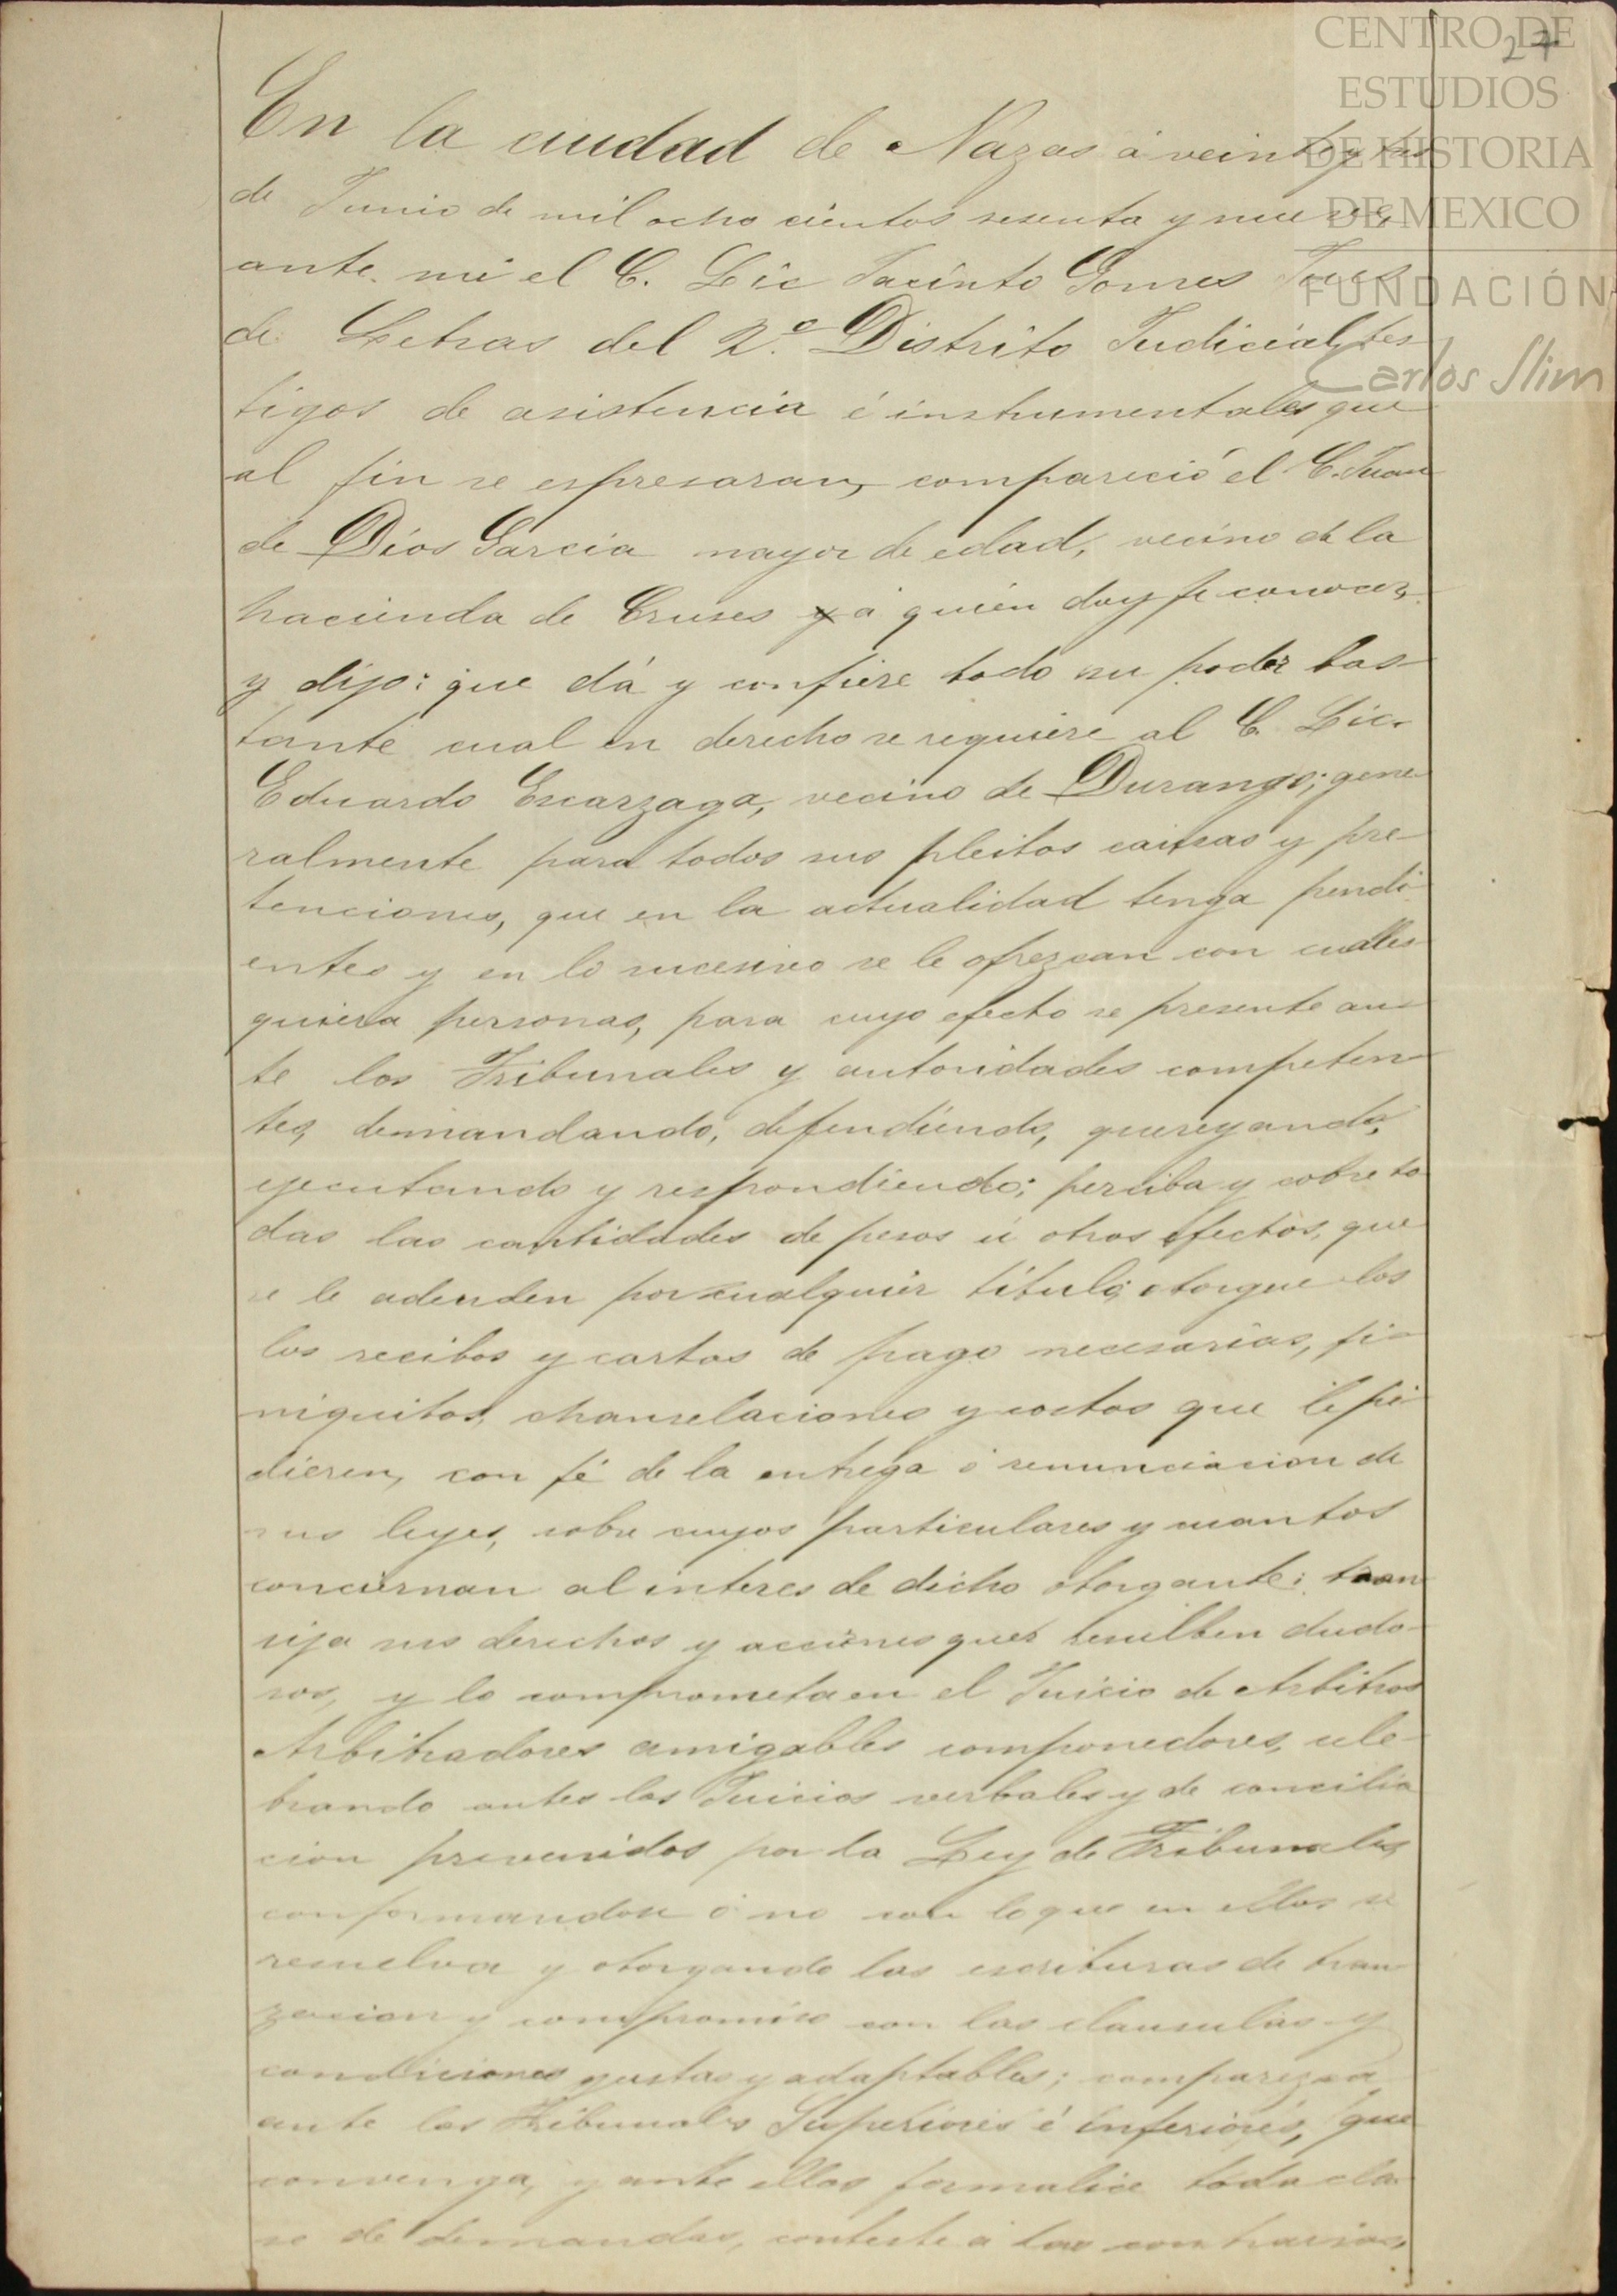 CENTRO DE
ESTUDIOS
DE HISTORIA
DE MEXICO
FUNDACIÓN
Carlos Slim
27
En la ciudad de Nazas á veinte y
de Junio de mil ocho cientos sesenta y nueve,
ante mi el C. Lic Jacinto Gomes Jues
de Letras del 2.º Distrito Judicial, tes
tigos de asistencia é instrumentales que
al fin se espresaran, compareció el C. Juan
de Dios Garcia mayor de edad, vecino de la
hacienda de Cruses y á quien doy fe conocer,
y dijo: que dá y confiere todo su poder bas
tante cual en derecho se requiere al C. Lic.
Eduardo Escarzaga, vecino de Durango; gene
ralmente para todos sus pleitos causas y pre
tenciones, que en la actualidad tenga pendi
entes y en lo sucesivo se le ofrezcan con cuales
quiera personas, para cuyo efecto se presente an
te los Tribunales y autoridades competen
tes, demandando, defendiendo, quereyando,
ejecutando y respondiendo; perciba y cobre to
das las cantidades de pesos ú otros efectos, que
se le adeuden por cualquier titulo; otorgue los
los recibos y cartas de pago necesarias, fi
niquitos, chanselaciones y costos que le pi
dieren, con fé de la entrega ó renunciacion de
sus leyes, sobre cuyos particulares y cuantos
conciernan al interes de dicho otorgante: tran
sija sus derechos y acciones ques resulten dudo
sos, y lo comprometa en el Juicio de Arbitros
Arbitradores amigables componedores, cele
brando antes los Juicios verbales y de concilia
cion prevenidos por la Ley de Tribunales,
conformandose ó no con lo que en ellos se
resuelva y otorgando las escrituras de tran
zacion y compromiso con las clausulas y
condiciones gustas y adaptables; comparezca
ante los Tribunales Superiores é inferiores, que
convenga, y ante ellos formalice toda cla
se de demandas, conteste á las contrarias,